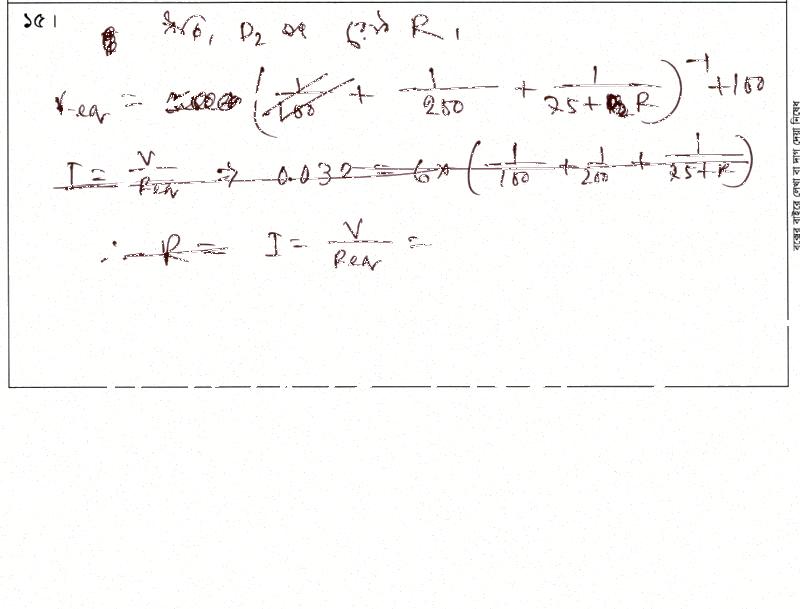 ১৫।
ধরি, D₂ এর রোধ R,
Req = (1/100 + 1/200 + 1/(25 + R))⁻¹ + 100
I = V/Req ⇒ 0.032 = 6 × (1/100 + 1/200 + 1/(25 + R))
∴ R = I = V/Req =
বক্সের বাইরে লেখা বা দাগ দেয়া নিষেধ